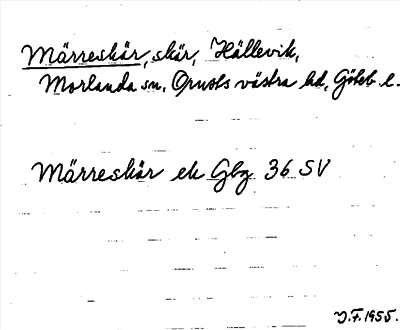 Märreskär, skär, Hällevik,
Morlanda sn, Orusts västra hd, Göteb l.
Märreskär ek Gbg 36 SV
J.F. 1955.